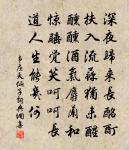 深夜歸來長酩酊
扶入流蘇猶未醒
醺醺酒氣麝蘭和
驚睡覺笑呵呵長
道人生能幾何
韋莊天仙子詞